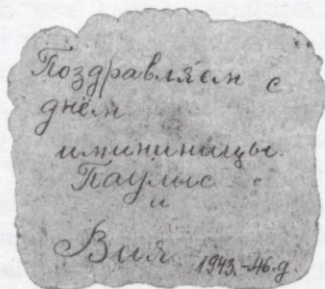 Поздравляем с
днём
именинницы.
Паулис
и
Вия. 1943.-46.g.